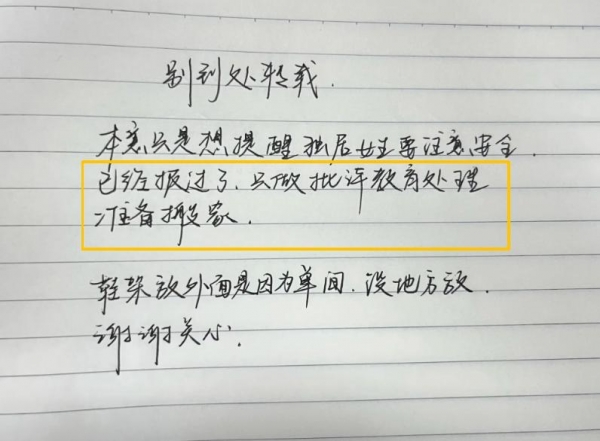 别到处转载.
本意只是想提醒独居女生要注意安全.
已经报过了.只做批评教育处理
准备搬家.
鞋架放外面是因为单间.没地方放.
谢谢关心.